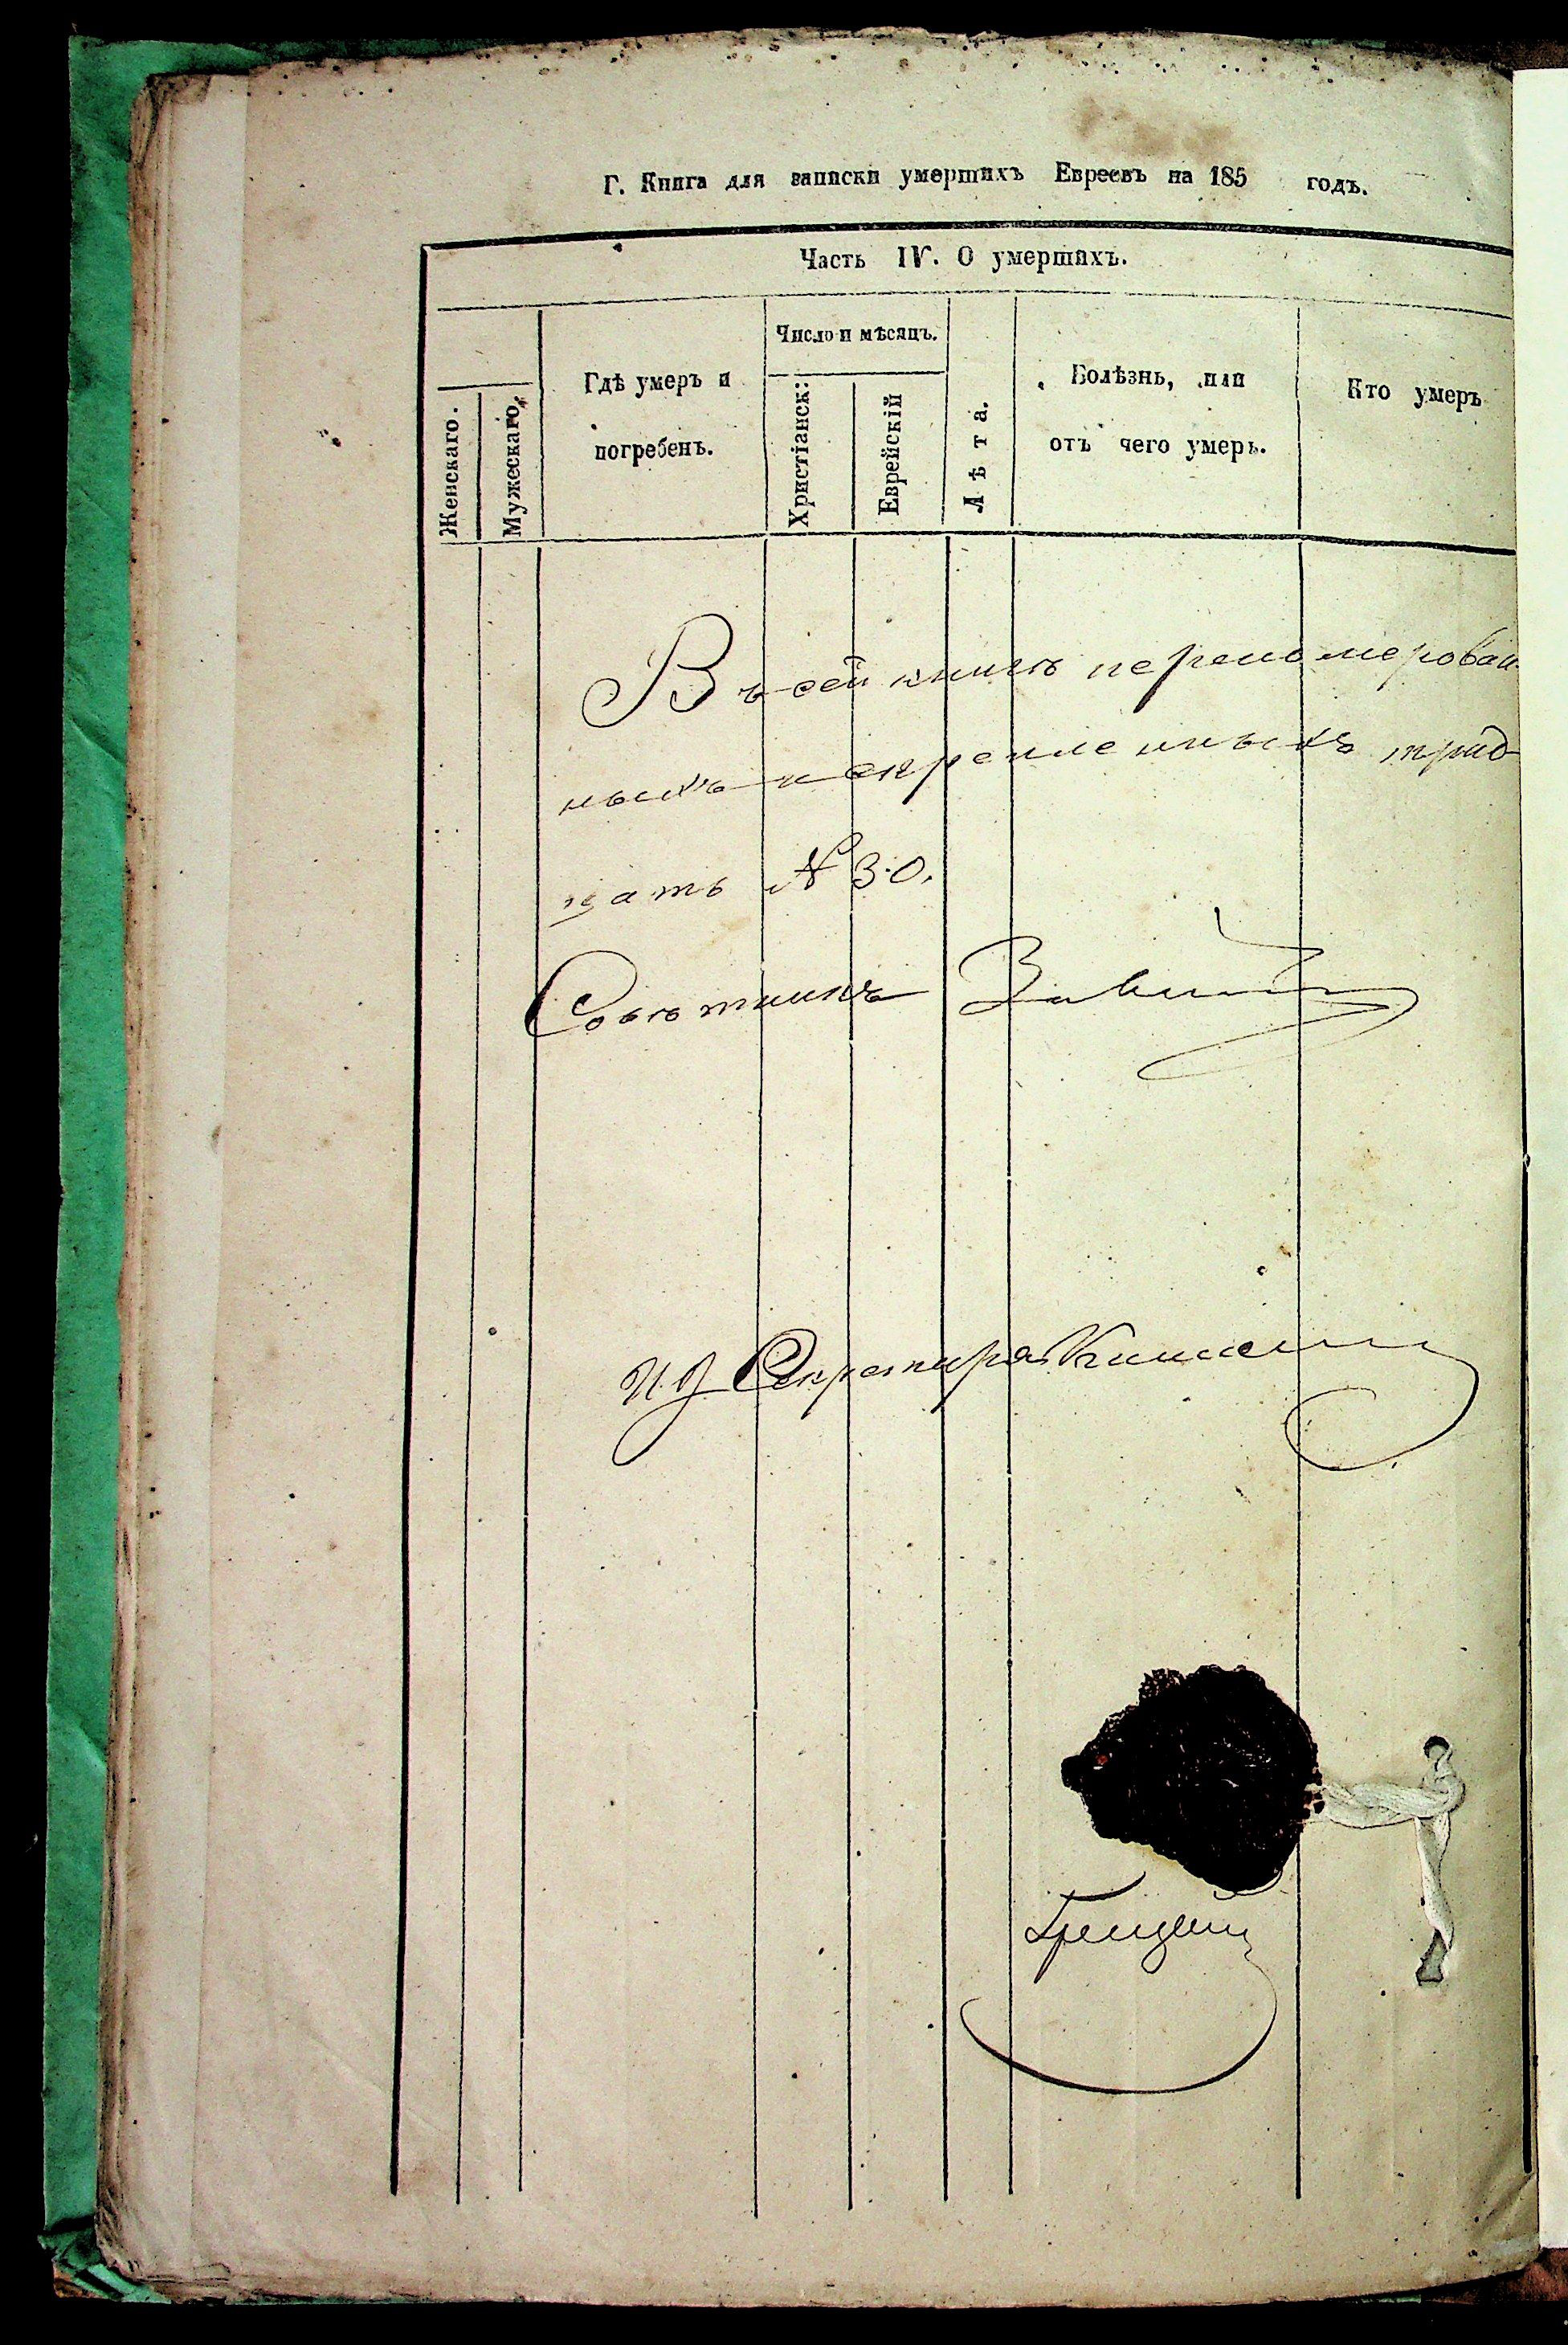 Г. Книга для записки умершихъ Евреевъ на 185 годъ.
Часть IV. О умершихъ.
Женскаго.
Мужескаго.
Гдѣ умеръ и
погребенъ.
Число и мѣсяцъ.
Христіанск:
Еврейскій
Лѣта.
Болѣзнь, или
отъ чего умеръ.
Кто умеръ
Въ сей книгѣ перенумерован
ныхъ и скрепленныхъ трид
цать № 30.
Совѣтникъ
И Д Секретаря